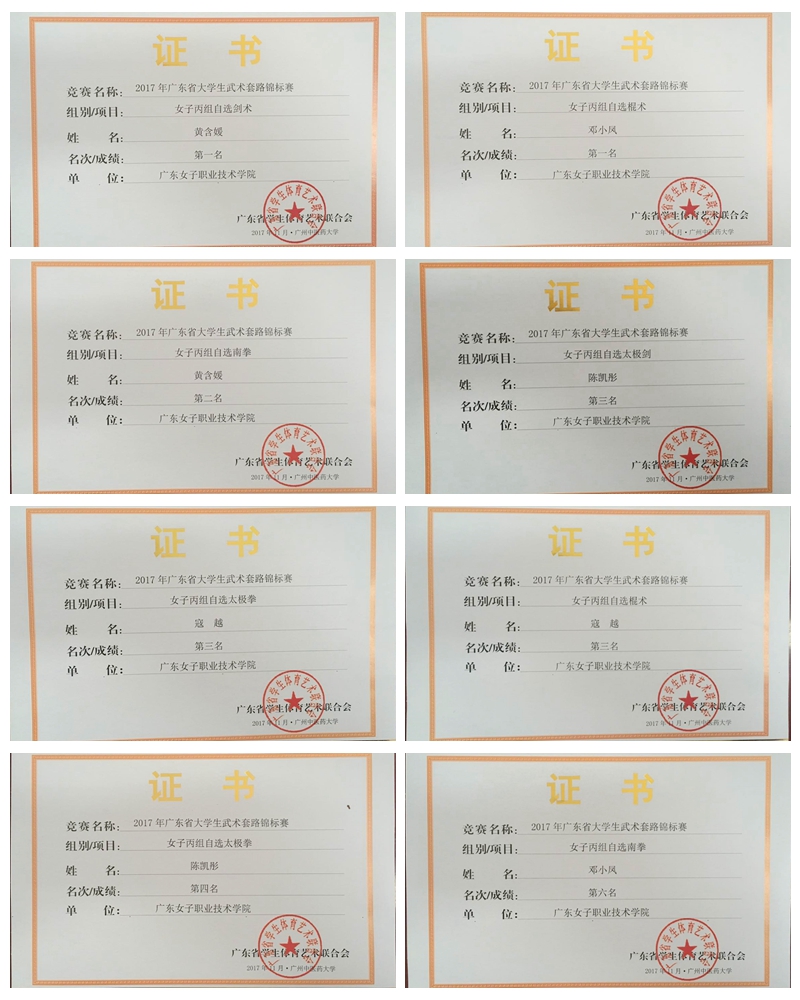 证 书
竞赛名称: 2017 年广东省大学生武术套路锦标赛
组别/项目: 女子丙组自选剑术
姓 名: 黄含媛
名次/成绩: 第一名
单 位: 广东女子职业技术学院
广东省学生体育艺术联合会
2017 年 11 月·广州中医药大学
证 书
竞赛名称: 2017 年广东省大学生武术套路锦标赛
组别/项目: 女子丙组自选棍术
姓 名: 邓小凤
名次/成绩: 第一名
单 位: 广东女子职业技术学院
广东省学生体育艺术联合会
2017 年 11 月·广州中医药大学
证 书
竞赛名称: 2017 年广东省大学生武术套路锦标赛
组别/项目: 女子丙组自选南拳
姓 名: 黄含媛
名次/成绩: 第二名
单 位: 广东女子职业技术学院
广东省学生体育艺术联合会
2017 年 11 月·广州中医药大学
证 书
竞赛名称: 2017 年广东省大学生武术套路锦标赛
组别/项目: 女子丙组自选太极剑
姓 名: 陈凯彤
名次/成绩: 第三名
单 位: 广东女子职业技术学院
广东省学生体育艺术联合会
2017 年 11 月·广州中医药大学
证 书
竞赛名称: 2017 年广东省大学生武术套路锦标赛
组别/项目: 女子丙组自选太极拳
姓 名: 寇 越
名次/成绩: 第三名
单 位: 广东女子职业技术学院
广东省学生体育艺术联合会
2017 年 11 月·广州中医药大学
证 书
竞赛名称: 2017 年广东省大学生武术套路锦标赛
组别/项目: 女子丙组自选棍术
姓 名: 寇 越
名次/成绩: 第三名
单 位: 广东女子职业技术学院
广东省学生体育艺术联合会
2017 年 11 月·广州中医药大学
证 书
竞赛名称: 2017 年广东省大学生武术套路锦标赛
组别/项目: 女子丙组自选太极拳
姓 名: 陈凯彤
名次/成绩: 第四名
单 位: 广东女子职业技术学院
广东省学生体育艺术联合会
2017 年 11 月·广州中医药大学
证 书
竞赛名称: 2017 年广东省大学生武术套路锦标赛
组别/项目: 女子丙组自选南拳
姓 名: 邓小凤
名次/成绩: 第六名
单 位: 广东女子职业技术学院
广东省学生体育艺术联合会
2017 年 11 月·广州中医药大学